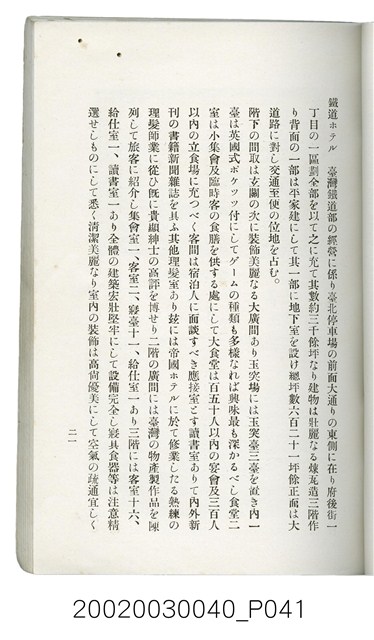 鐵道ホテル　臺灣鐵道部の經營に係り臺北停車場の前面大通りの東側に在り府後街一
丁目の一區劃全部を以て之に充て其數約三千餘坪なり建物は壯麗なる煉瓦造三階作
り背面の一部は平家建にして其一部に地下室を設け總坪數六百二十一坪餘正面は大
道路に對し交通至便の位地を占む。
階下の間取は玄關の次に裝飾美麗なる大廣間あり玉突場には玉突臺三臺を置き内一
臺は英國式ポケッツ付にしてゲームの種類も多樣なれば興味最も深かるべし食堂二
室は小集會及臨時客の食膳を供する處にして大食堂は百五十人以内の宴會及三百人
以内の立食場に充つべく客間は宿泊人に面談すべき應接室とす讀書室ありて内外新
刊の書籍新聞雜誌を具ふ其他理髮室あり玆には帝國ホテルに於て修業したる熟練の
理髮師業に從ひ旣に貴顯紳士の高評を博せり二階の廣間には臺灣の物產製作品を陳
列して旅客に紹介し集會室一、客室二、寢臺十一、給仕室一あり三階には客室十六、
給仕室一、讀書室一あり全體の建築宏壯堅牢にして設備完全し寢具食器等は注意精
選せしものにして悉く清潔美麗なり室内の裝飾は高尙優美にして空氣の疏通宜しく
二一
20020030040_P041